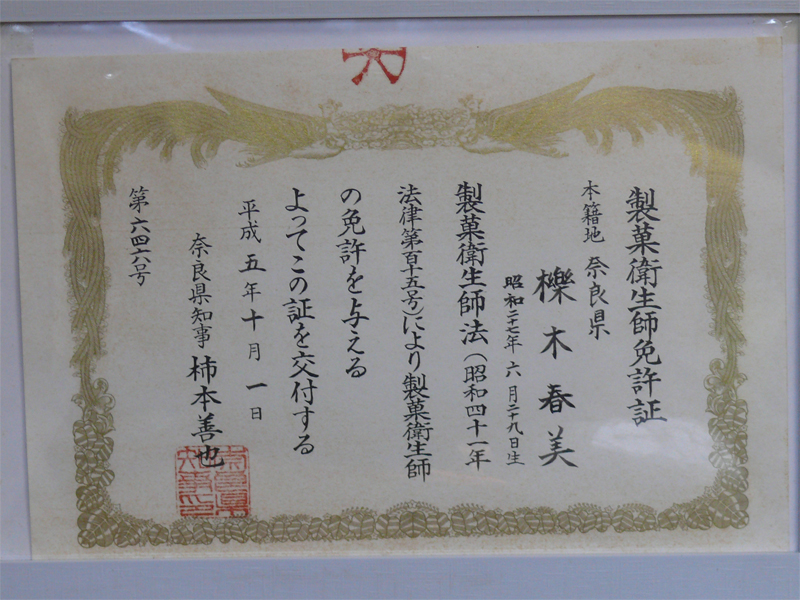 製菓衛生師免許証
本籍地 奈良県
櫟木春美
昭和二十七年六月二十九日生
製菓衛生師法(昭和四十一年
法律第百十五号)により製菓衛生師
の免許を与える
よってこの証を交付する
平成五年十月一日
奈良県知事 柿本善也
第六四六号